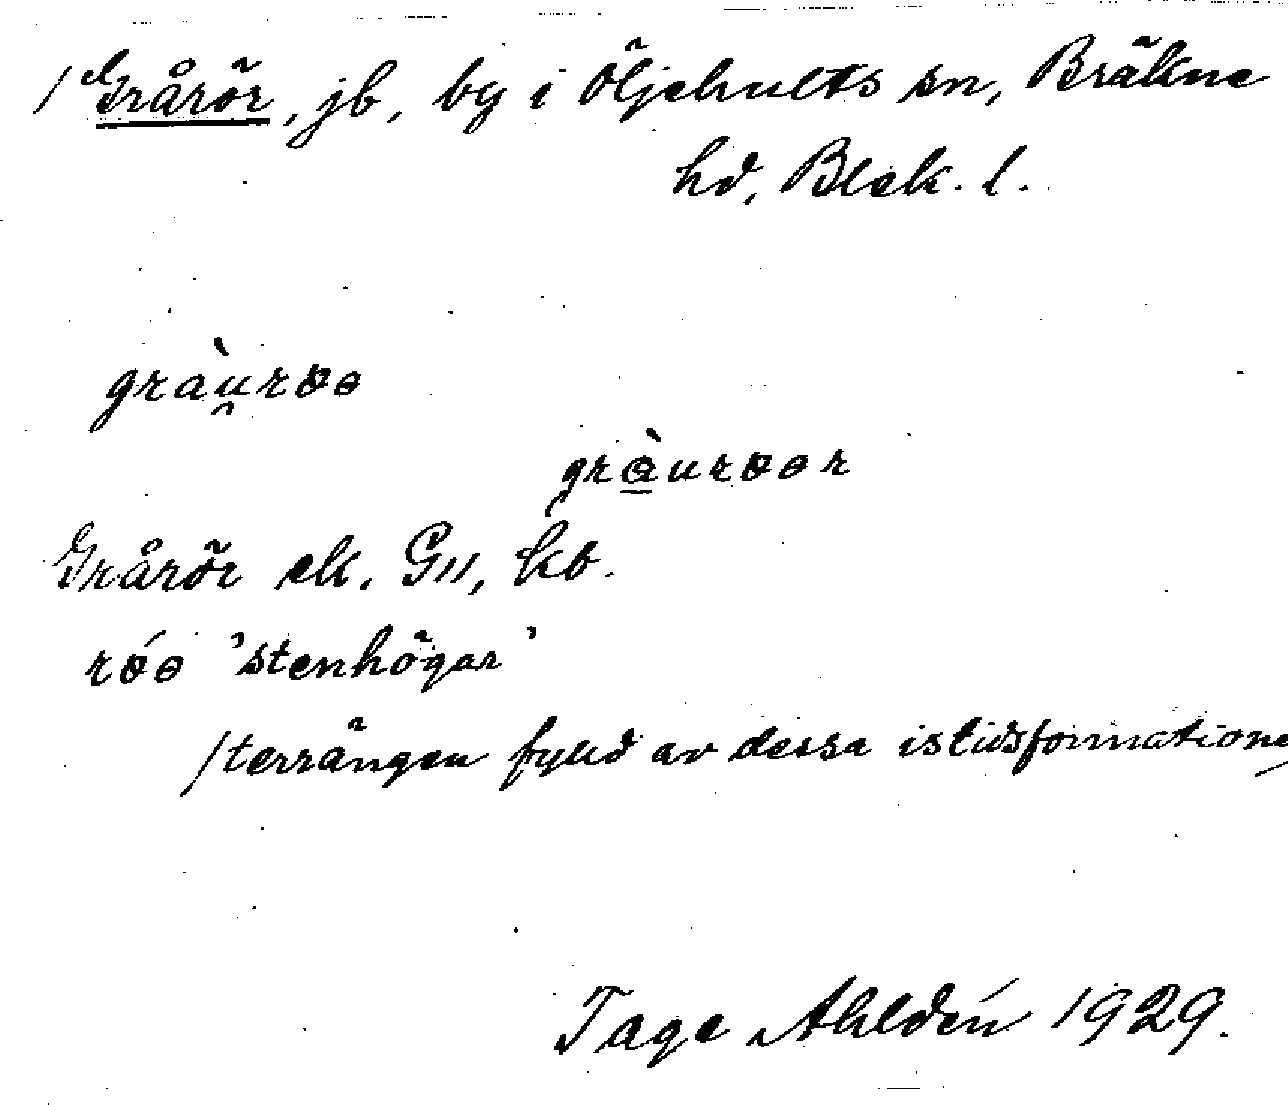 1 Grårör, jb, by i Öljehults sn, Bräkne
hd, Blek. l.
gràu̯rɞɵ
grɵ̠̀urɞɵr
Grårör ek. G11, kb.
rɞ́ɵ 'stenhögar'
/terrängen fylld av dessa istidsformatione
Tage Ahldén 1929.